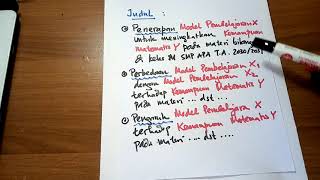 Judul :
① Penerapan Model Pembelajaran X
untuk meningkatkan Kemampuan
Matematis Y pada materi bilangan
di kelas VII SMP APA T.A. 2020/2021
② Perbedaan Model Pembelajaran X1
dengan Model Pembelajaran X2
terhadap Kemampuan Matematis Y
pada materi ... dst ...
③ Pengaruh Model Pembelajaran X
terhadap Kemampuan Matematis Y
pada materi ... dst ....